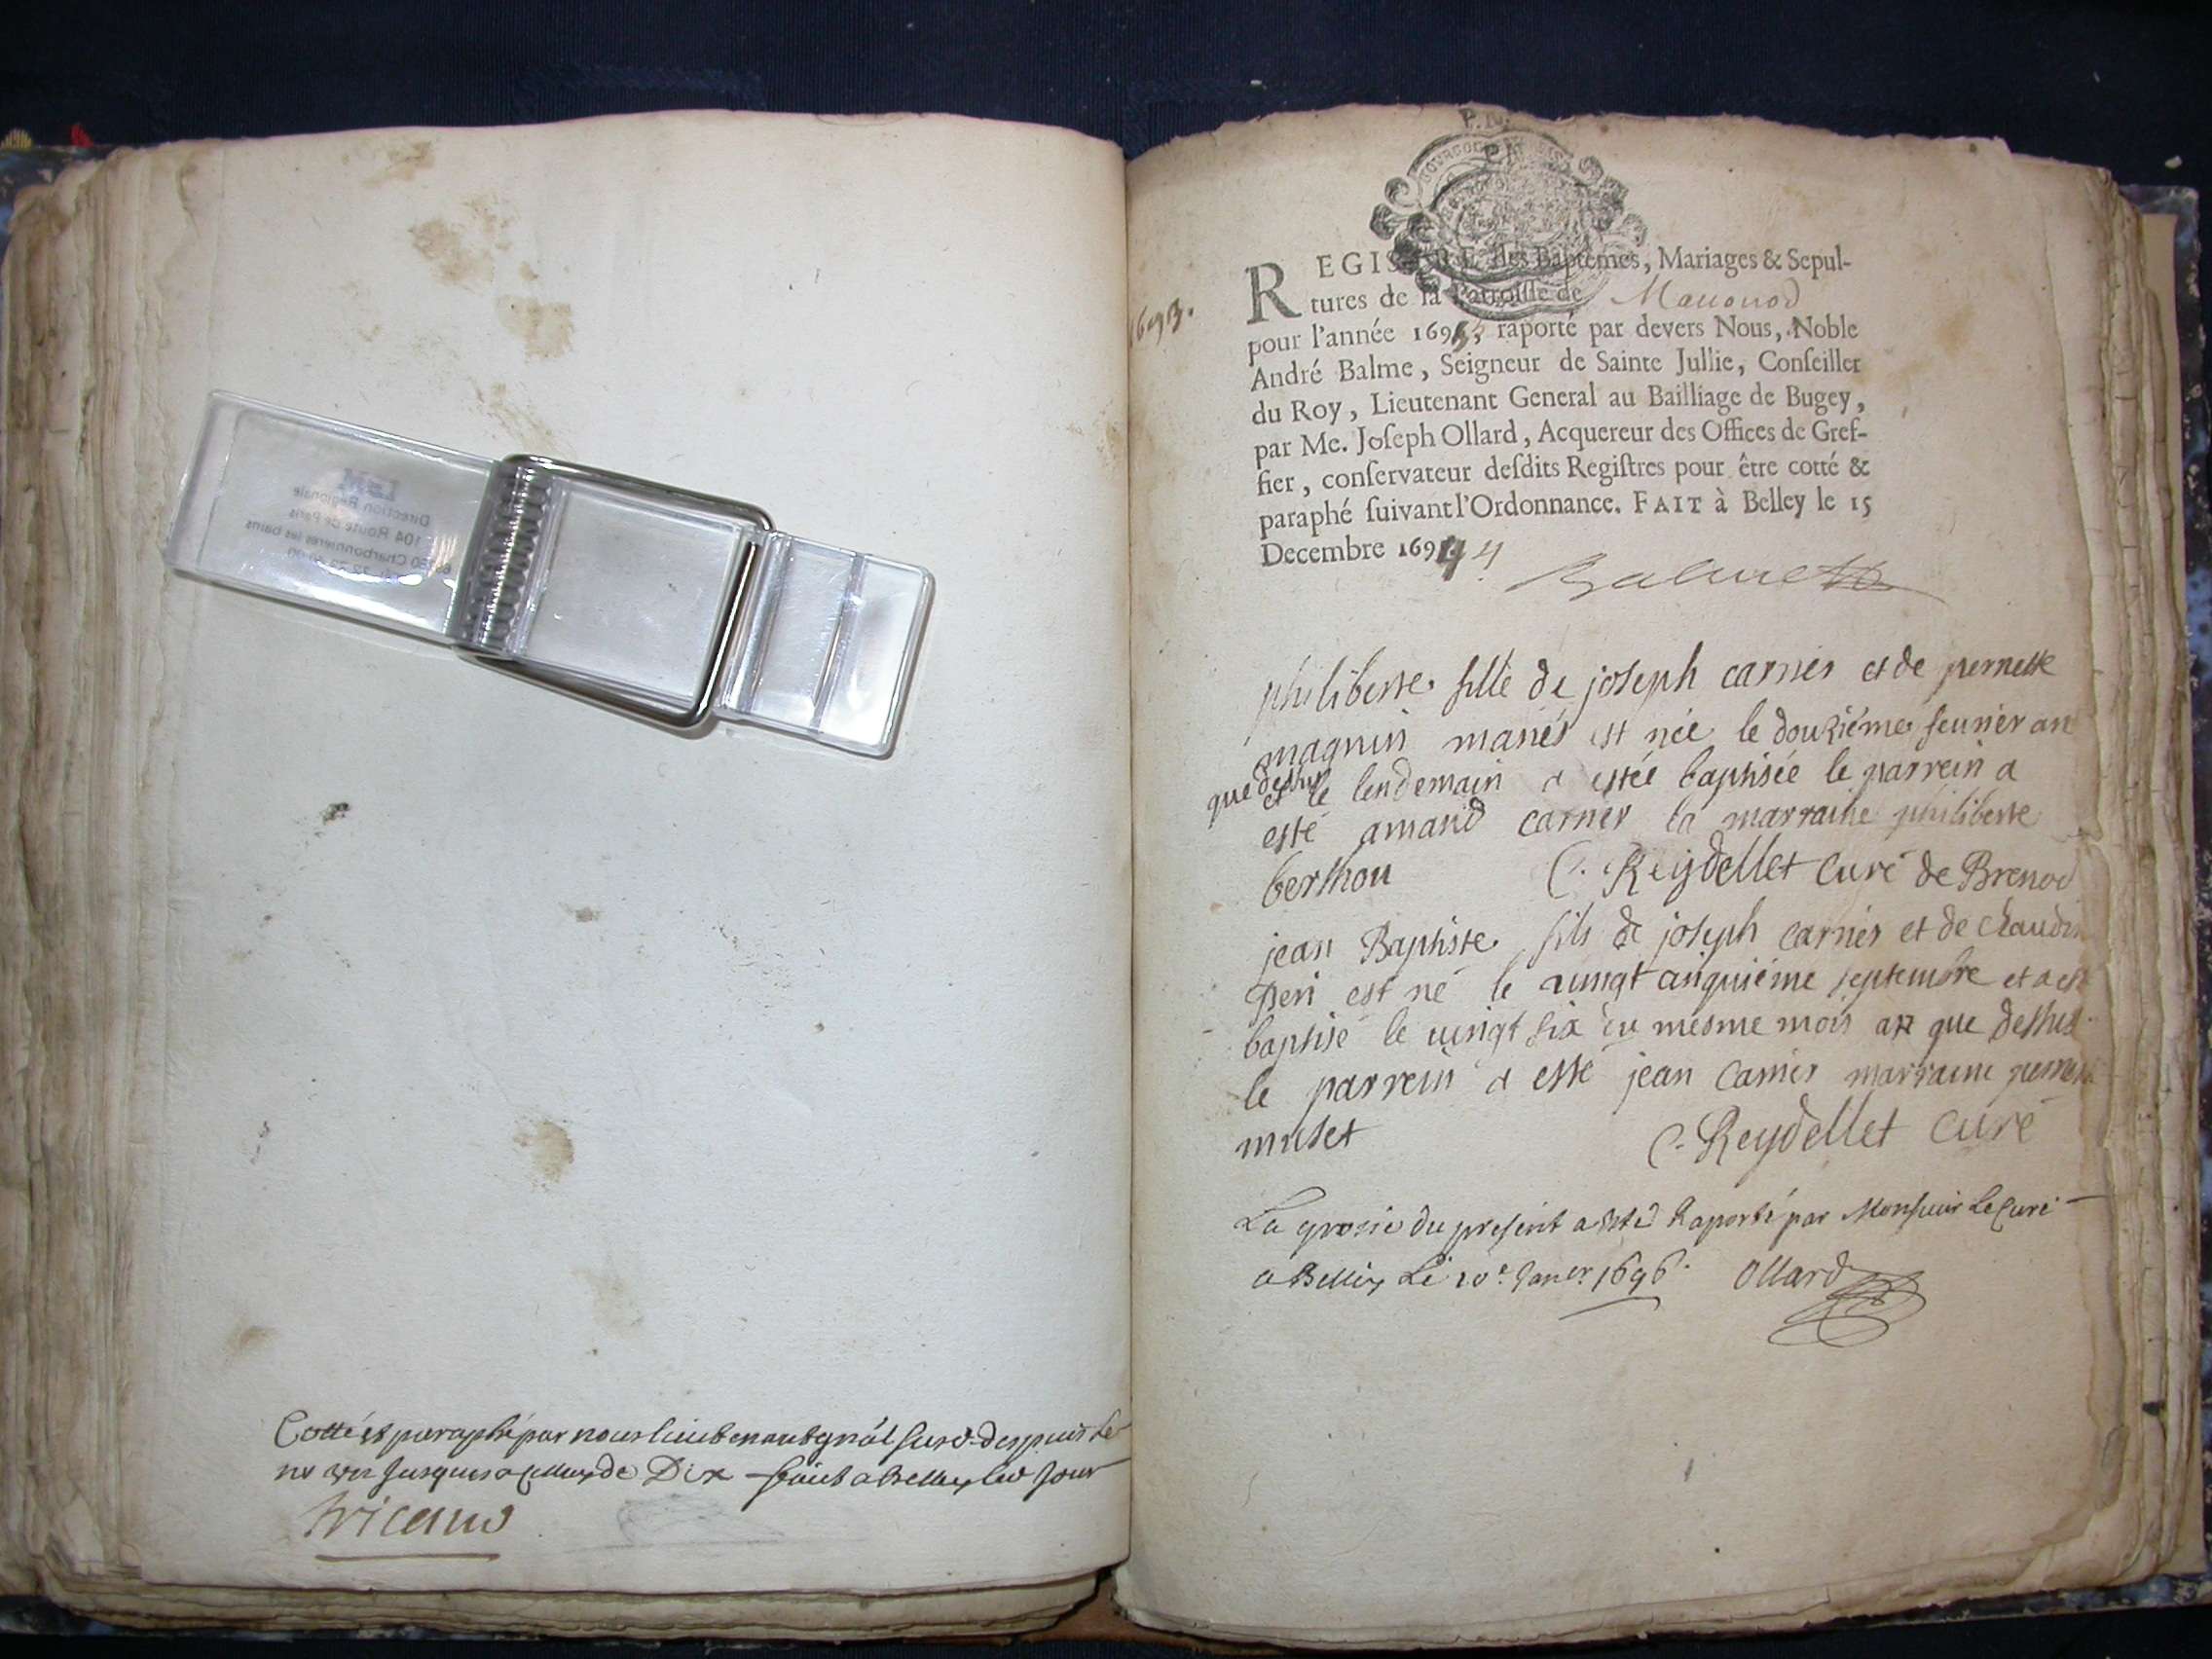 Cotté et paraphé par nous lieutenant gnâl susd. despuis le
jusques a celluy de Dix faict a Belley led jour
tricaud
1693.
REGISTRE des Baptêmes, Mariages & Sepul-
tures de la Parroisse de
pour l'année 1695, raporté par devers Nous, Noble
André Balme, Seigneur de Sainte Jullie, Conseiller
du Roy, Lieutenant General au Bailliage de Bugey,
par Me. Joseph Ollard, Acquereur des Offices de Gref-
fier, conservateur desdits Registres pour être cotté &
paraphé suivant l'Ordonnance. FAIT à Belley le 15
Decembre 1694
Balme
philiberte fille de joseph carrier et de pernette
magnin mariés est née le douziéme feurier an
que dessus
et le lendemain a estée baptisée le parrein a
esté amand carrier la marraine philiberte
berthou C. Reydellet curé de Brenod
jean Baptiste fils de joseph carrier et de claudin
peri est né le vingt cinquiéme septembre et a est
baptisé le vingt six du mesme mois an que dessus
le parrein a esté jean carrier marraine perret
muset C. Reydellet curé
La grosse du present a esté Raporté par Monsieur Le Curé
a Belley Le 10e Janer 1696. Ollard
104 Route de Paris
Direction Régionale
Charbonnieres les bains